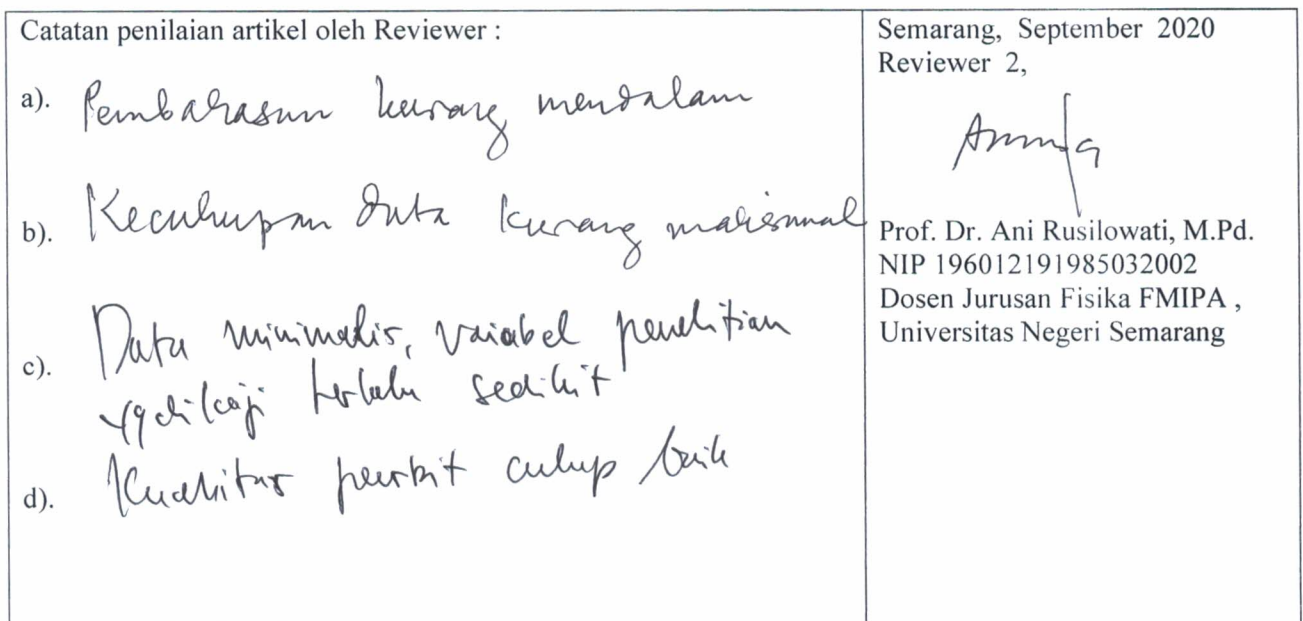 Catatan penilaian artikel oleh Reviewer :
a). Pembahasan kurang mendalam
b). Kecukupan data kurang maksimal
c). Data minimalis, variabel penelitian
yg dikaji terlalu sedikit
d). Kualitas penerbit cukup baik
Semarang, September 2020
Reviewer 2,
Prof. Dr. Ani Rusilowati, M.Pd.
NIP 196012191985032002
Dosen Jurusan Fisika FMIPA ,
Universitas Negeri Semarang